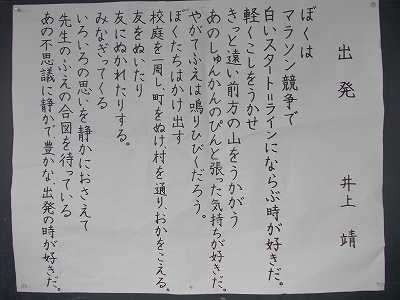 出発　井上　靖
ぼくは
マラソン競争で
白いスタート＝ラインにならぶ時が好きだ。
軽くこしをうかせ
きっと遠い前方の山をうかがう
あのしゅんかんのぴんと張った気持ちが好きだ。
やがてふえは鳴りひびくだろう。
ぼくたちはかけ出す
校庭を一周し、町をぬけ、村を通り、おかをこえる。
友をぬいたり
友にぬかれたりする。
みなぎってくる
いろいろの思いを静かにおさえて
先生のふえの合図を待っている
あの不思議に静かで、豊かな、出発の時が好きだ。